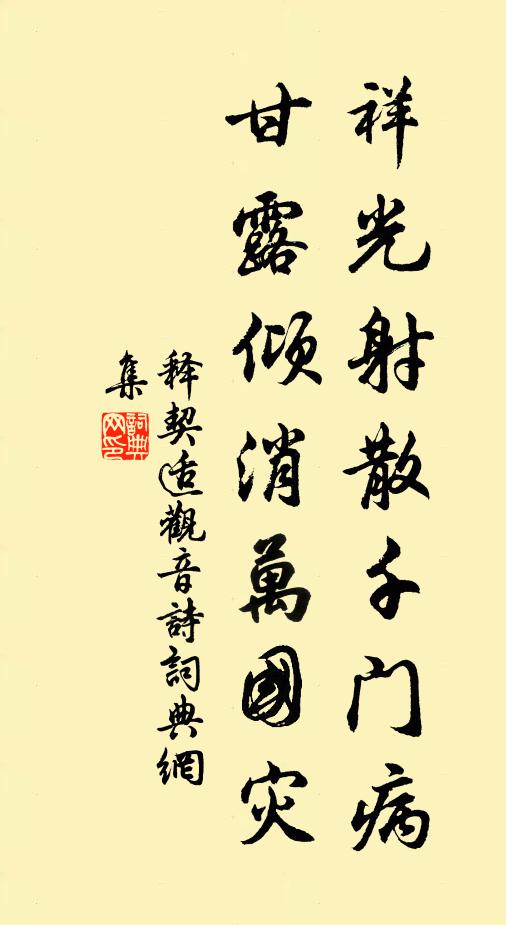 祥光射散千门病
甘露倾消萬國灾
释契适觀音詩詞典網
集
詞典网印